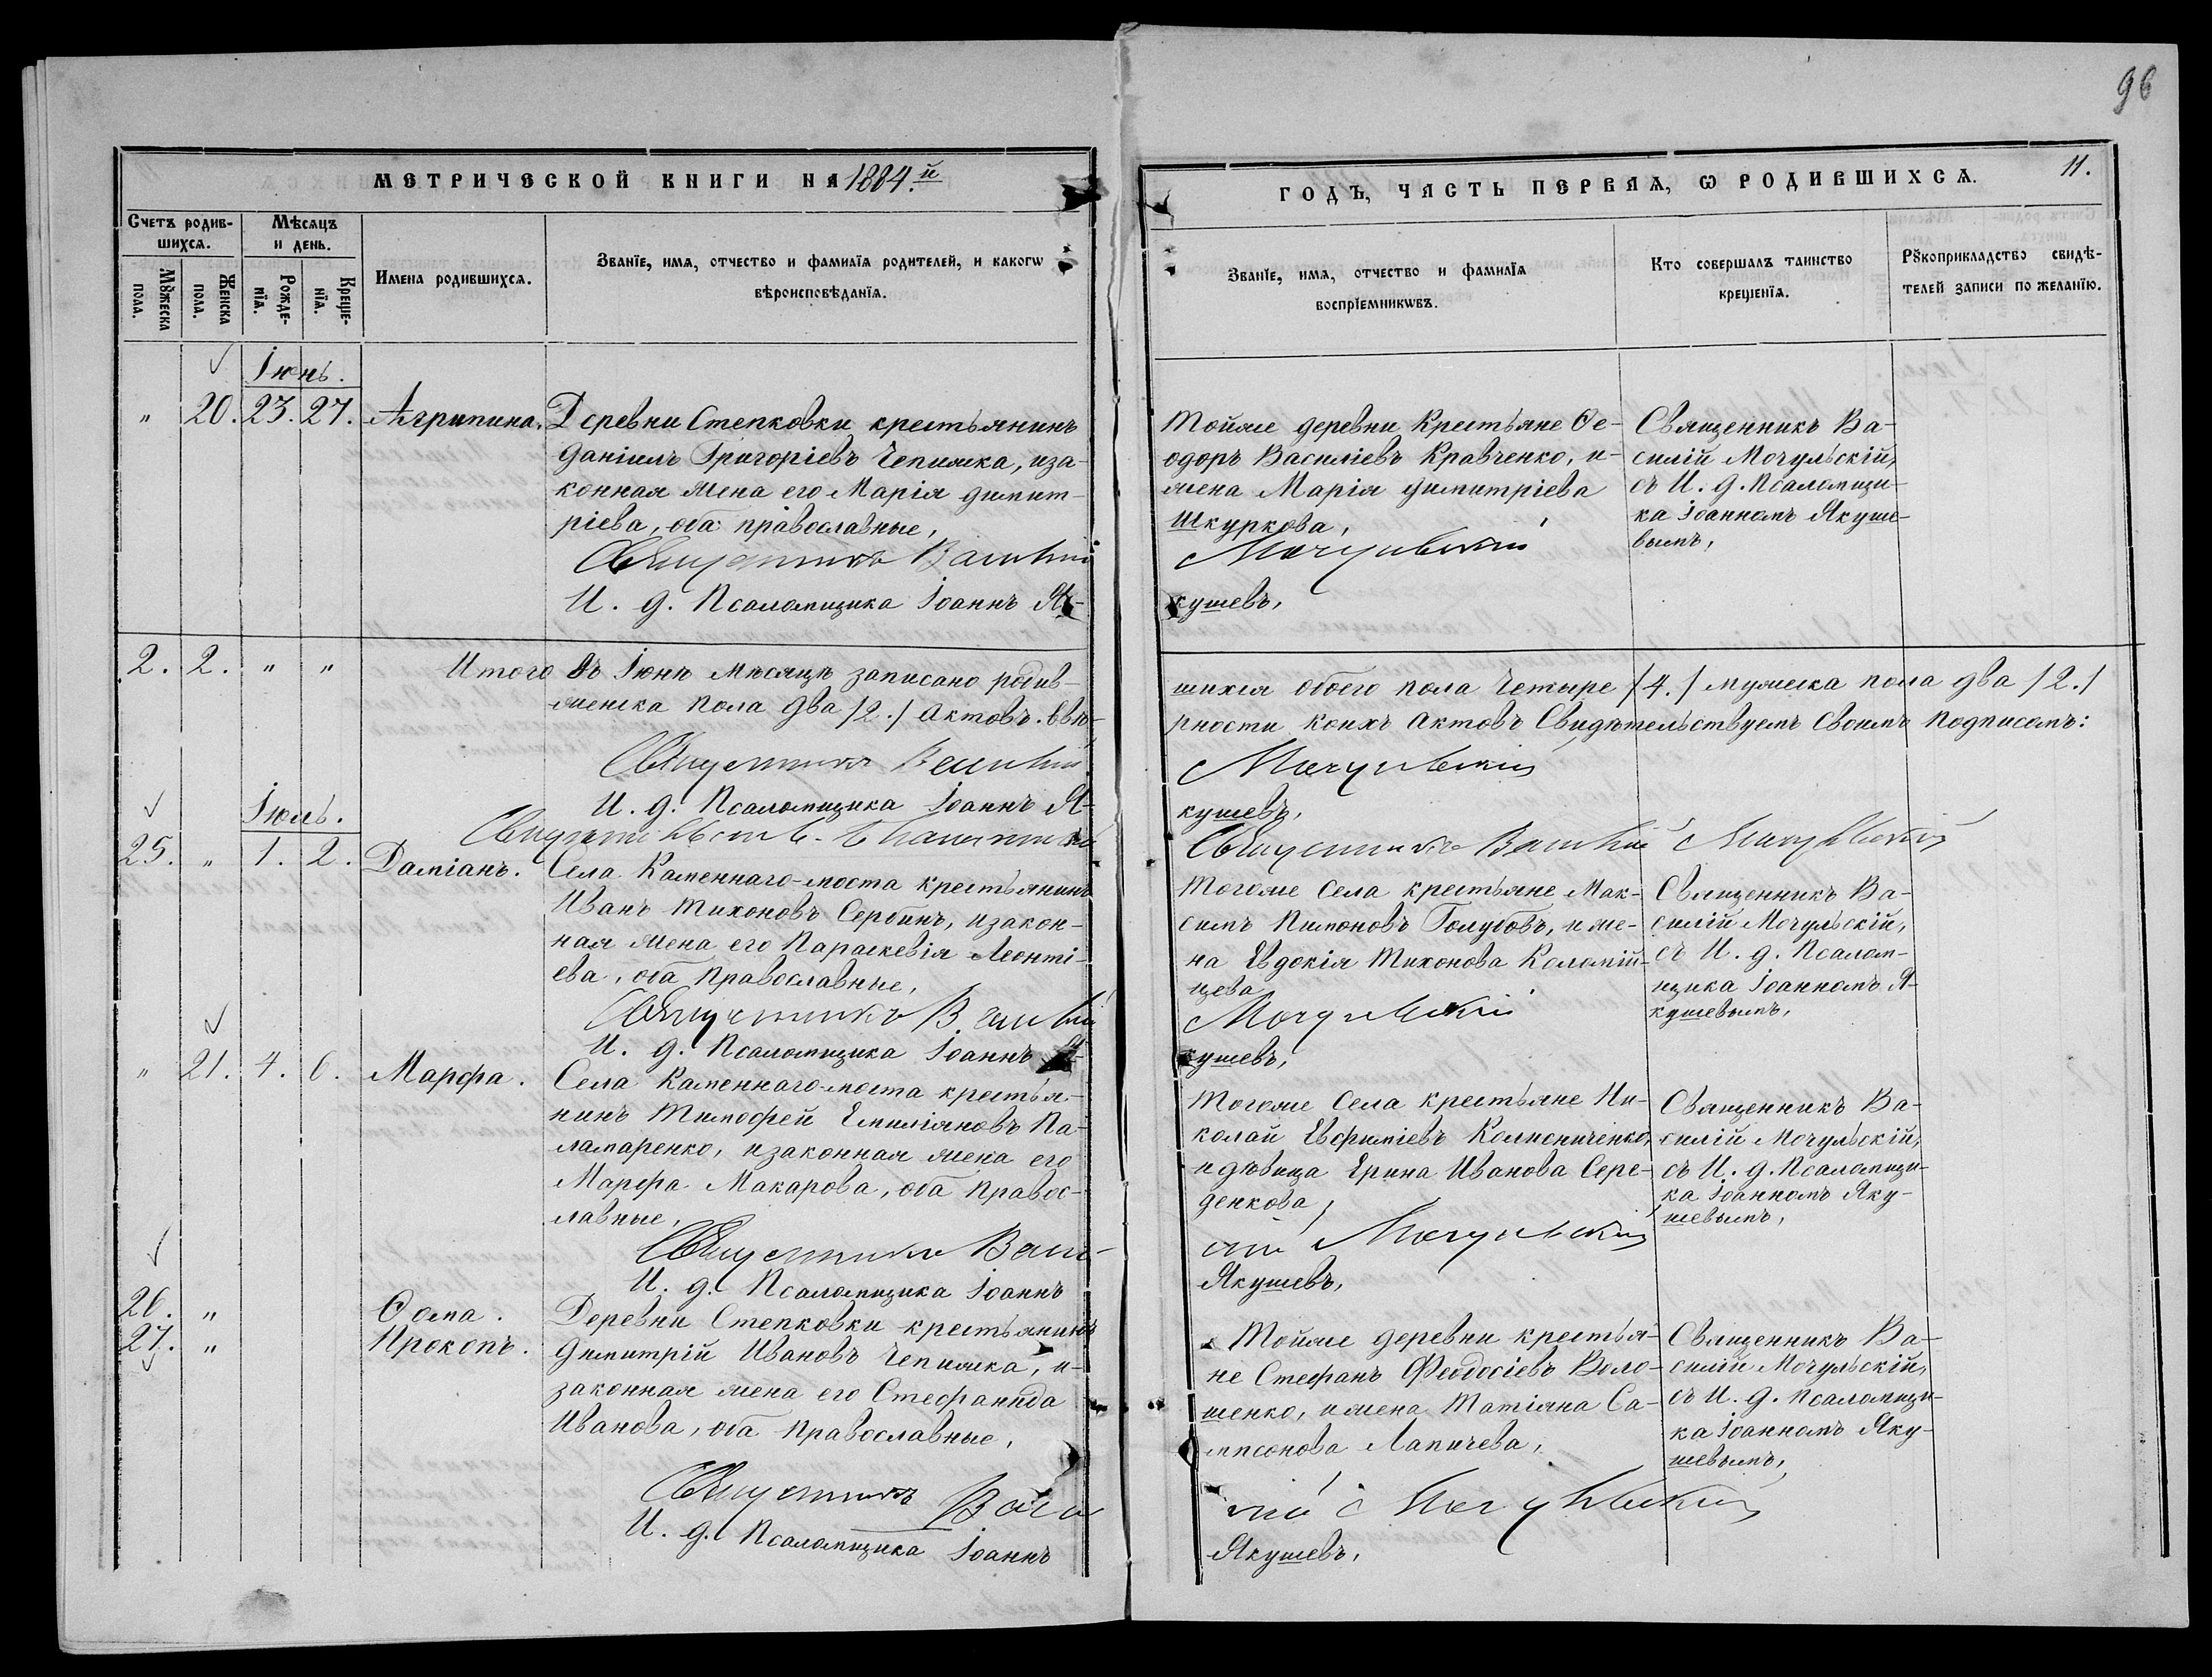 96
МЕТРИЧЕСКОЙ КНИГИ НА 1884.й
ГОДЪ, ЧАСТЬ ПЕРВАЯ, Ѡ РОДИВШИХСѦ.
11.
Счетъ родив-
шихсѧ.
Мѣсѧцъ
и день.
Мꙋжеска
пола.
Женска
пола.
Рожде-
нїѧ.
Креще-
нїѧ.
Имена родившихсѧ.
Званїе, имѧ, отчество и фамилїѧ родителей, и какогѡ
вѣроисповѣданїѧ.
Званїе, имѧ, отчество и фамилїѧ
воспрїемникѡвъ.
Кто совершалъ таинство
крещенїѧ.
Рꙋкоприкладство свидѣ-
телей записи по желанїю.
Іюнь.
" 20. 23. 27. Агрипина.
Деревни Степковки крестьянинъ
Даніилъ Григоріевъ Чепижка, иза-
конная жена его Марія Димит-
ріева, оба православные,
Священникъ Василій
И. д. Псаломщика Іоаннъ Я-
Тойже деревни Крестьяне Ѳе-
одоръ Василіевъ Кравченко, и
жена Марія Димитріева
Шкуркова,
Мочульскій
кушевъ,
Священникъ Ва-
силій Мочульскій,
съ И. д. Псаломщи-
ка Іоанномъ Якуше-
вымъ,
2. 2. " " Итого въ Іюнѣ мѣсяцѣ записано родив-
шихся обоего пола Четыре /4./ мужеска пола два /2./
женска пола два /2./ актовъ. Ввѣ-
рности коихъ актовъ Свидѣтельствуемъ Своимъ подписомъ:
Священникъ Василій
Мочульскій
И. д. Псаломщика Іоаннъ Я-
кушевъ,
Священникъ Василій Мочульскій
Іюль.
25. " 1. 2. Даміанъ.
Села Каменнаго-моста крестьянинъ
Иванъ Тихоновъ Сербинъ, изакон-
ная жена его Параскевія Леонті-
ева, оба православные,
Священникъ Василій
И. д. Псаломщика Іоаннъ Я-
Тогоже Села крестьяне Мак-
симъ Пимоновъ Голубовъ, и же-
на Евдокія Тихонова Коломій-
цева
Мочульскій
кушевъ,
Священникъ Ва-
силій Мочульскій,
съ И. д. Псалом-
щика Іоанномъ Я-
кушевымъ,
" 21. 4. 6. Марфа.
Села Каменнаго-моста крестья-
нинъ Тимофей Емиліяновъ Па-
ламаренко, изаконная жена его
Марфа Макарова, оба правос-
лавные,
Священникъ Васи-
И. д. Псаломщика Іоаннъ
Тогоже Села крестьяне Ни-
колай Евфиміевъ
идѣвица Ерина Иванова Сере-
денкова,
лій Мочульскій
Якушевъ,
Священникъ Ва-
силій Мочульскій,
съ И. д. Псаломщи-
ка Іоанномъ Яку-
шевымъ,
26. " Ѳома.
27. " Прокопъ.
Деревни Степковки крестьянинъ
Димитрій Ивановъ Чепижка, и
законная жена его Стефанида
Иванова, оба православные,
Священникъ Васи
И. д. Псаломщика Іоаннъ
Тойже деревни крестья-
не Стефанъ Феодосіевъ Воло-
шенко, и жена Татіяна Са-
мпсонова Лапичева,
лій Мочульскій
Якушевъ,
Священникъ Ва-
силій Мочульскій,
съ И. д. Псаломщи-
ка Іоанномъ Яку-
шевымъ,